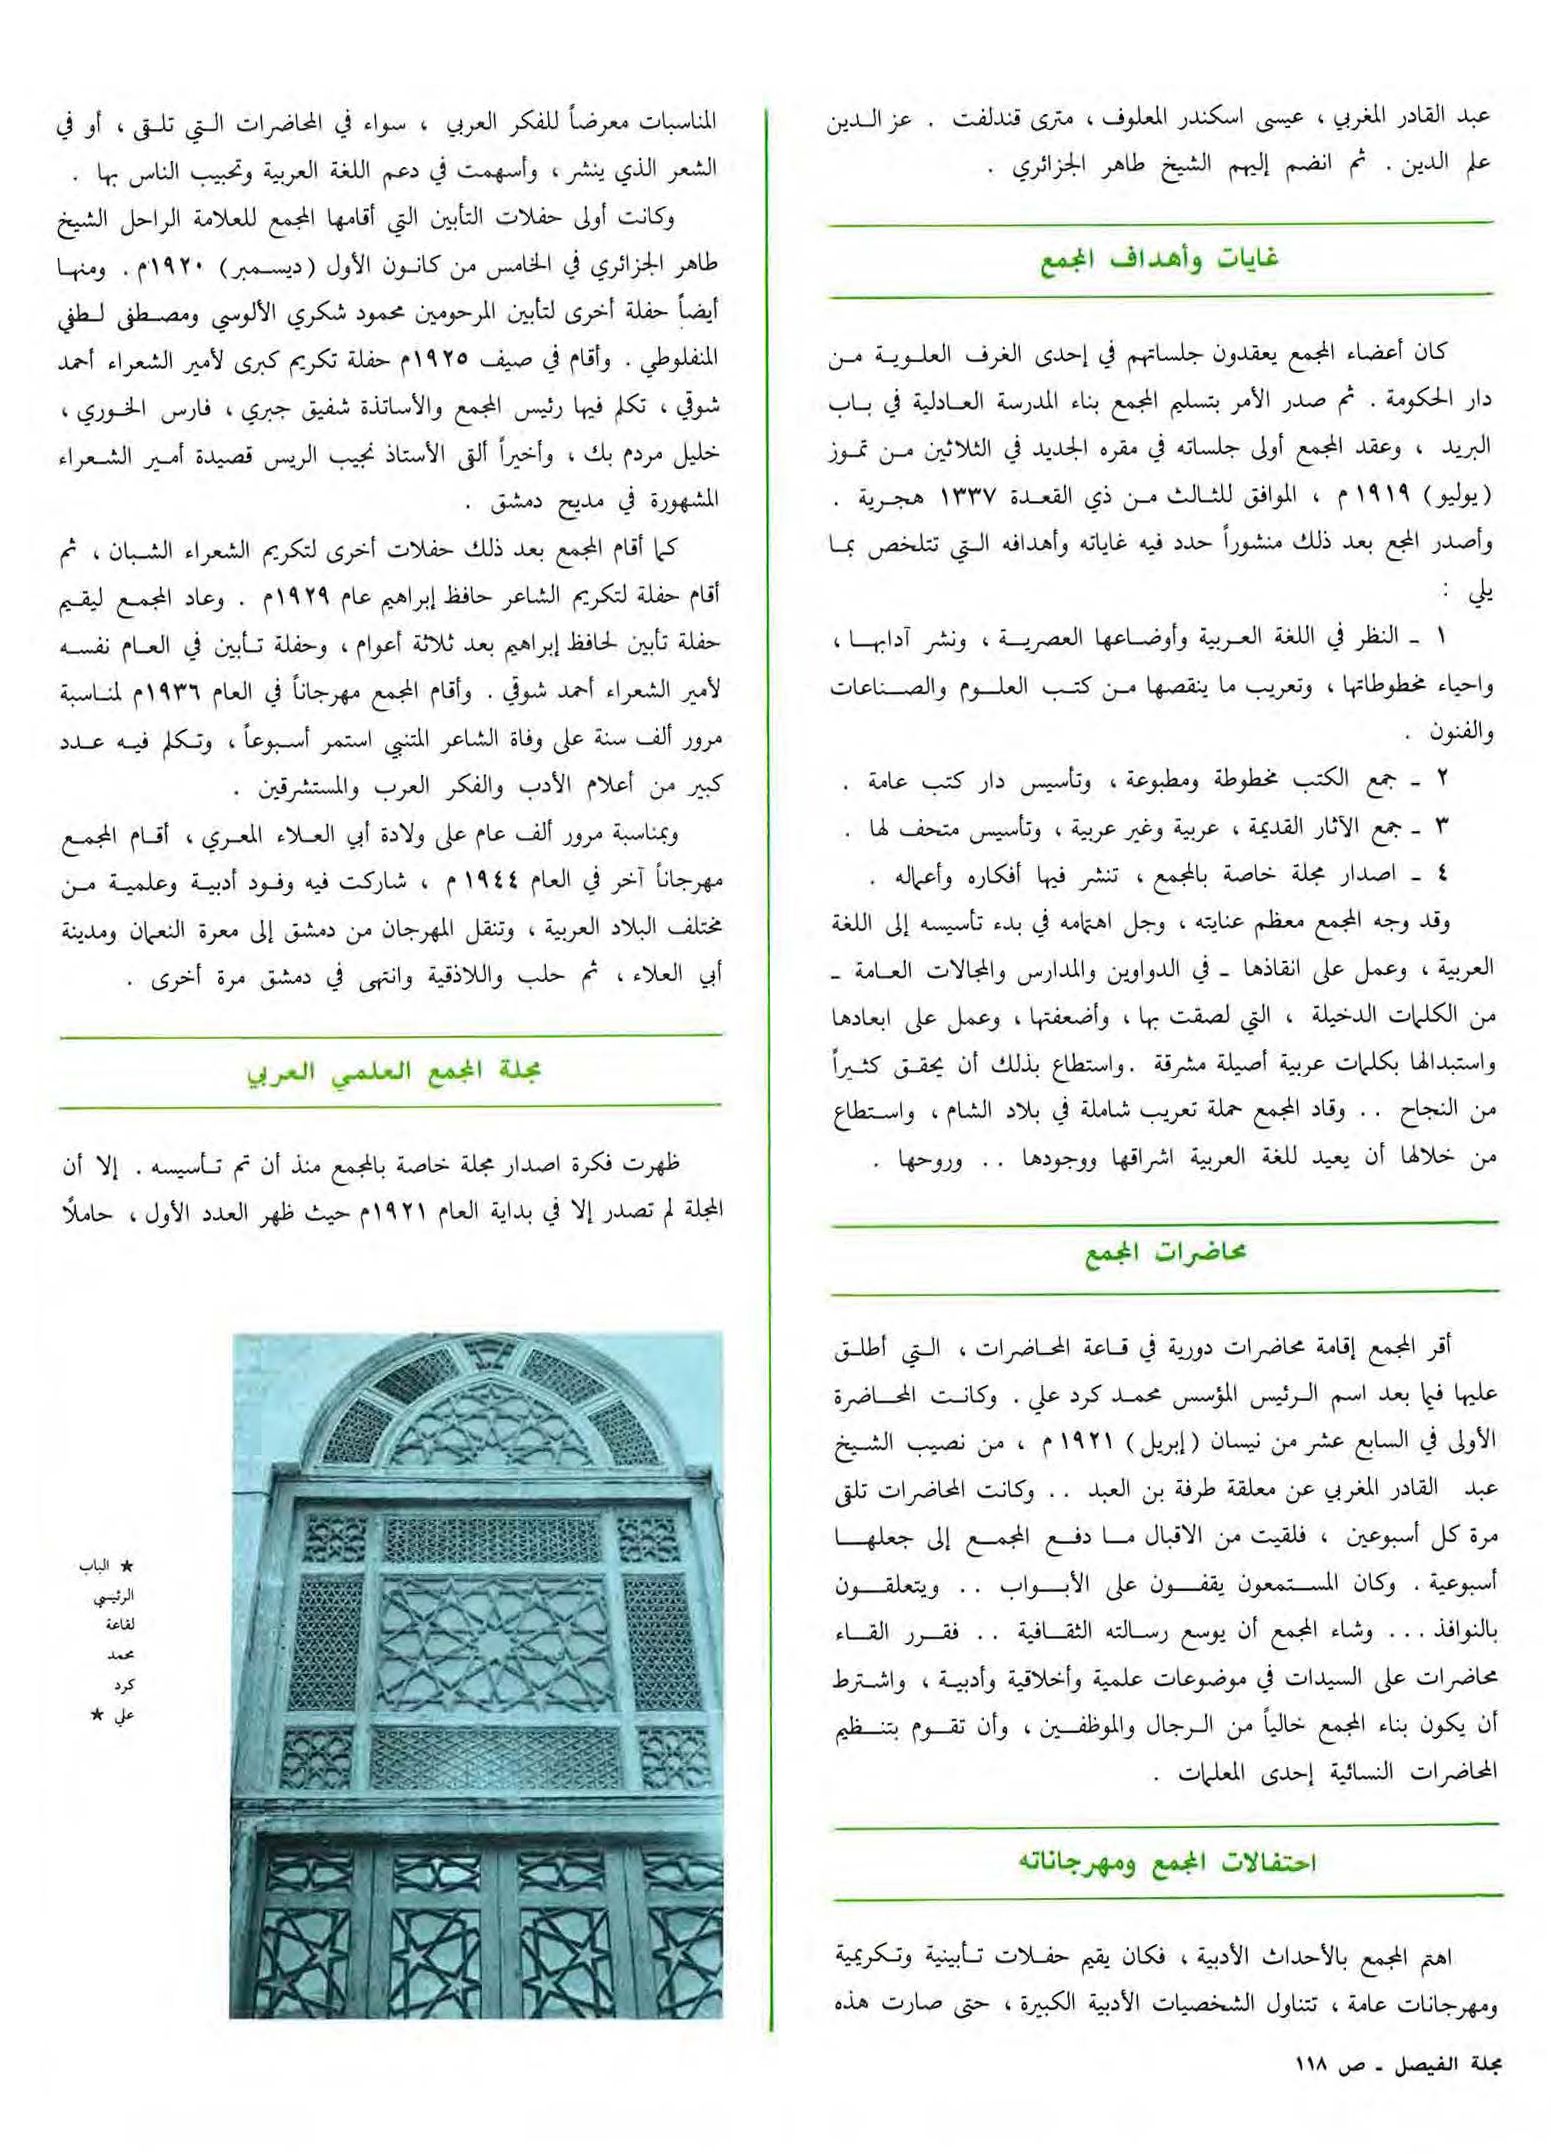 عبد القادر المغربي ، عيسى اسكندر المعلوف ، مترى قندلفت . عز الدين
علم الدين . ثم انضم إليهم الشيخ طاهر الجزائري .
غايات وأهداف المجمع
كان أعضاء المجمع يعقدون جلساتهم في إحدى الغرف العلوية من
دار الحكومة . ثم صدر الأمر بتسليم المجمع بناء المدرسة العادلية في باب
البريد ، وعقد المجمع أولى جلساته في مقره الجديد في الثلاثين من تموز
(يوليو) ١٩١٩ م ، الموافق للثالث من ذي القعدة ١٣٣٧ هجرية .
وأصدر المجع بعد ذلك منشوراً حدد فيه غاياته وأهدافه التي تتلخص بما
يلي :
١ - النظر في اللغة العربية وأوضاعها العصرية ، ونشر آدابها ،
واحياء مخطوطاتها ، وتعريب ما ينقصها من كتب العلوم والصناعات
والفنون .
٢ - جمع الكتب مخطوطة ومطبوعة ، وتأسيس دار كتب عامة .
٣ - جمع الآثار القديمة ، عربية وغير عربية ، وتأسيس متحف لها .
٤ - اصدار مجلة خاصة بالمجمع ، تنشر فيها أفكاره وأعماله .
وقد وجه المجمع معظم عنايته ، وجل اهتمامه في بدء تأسيسه إلى اللغة
العربية ، وعمل على انقاذها - في الدواوين والمدارس والمجالات العامة -
من الكلمات الدخيلة ، التي لصقت بها ، وأضعفتها ، وعمل على ابعادها
واستبدالها بكلمات عربية أصيلة مشرقة . واستطاع بذلك أن يحقق كثيراً
من النجاح .. وقاد المجمع حملة تعريب شاملة في بلاد الشام ، واستطاع
من خلالها أن يعيد للغة العربية اشراقها ووجودها .. وروحها .
محاضرات المجمع
أقر المجمع إقامة محاضرات دورية في قاعة المحاضرات ، التي أطلق
عليها فيما بعد اسم الرئيس المؤسس محمد كرد علي . وكانت المحاضرة
الأولى في السابع عشر من نيسان (إبريل) ١٩٢١ م ، من نصيب الشيخ
عبد القادر المغربي عن معلقة طرفة بن العبد .. وكانت المحاضرات تلقى
مرة كل أسبوعين ، فلقيت من الاقبال ما دفع المجمع إلى جعلها
أسبوعية . وكان المستمعون يقفون على الأبواب .. ويتعلقون
بالنوافذ ... وشاء المجمع أن يوسع رسالته الثقافية .. فقرر القاء
محاضرات على السيدات في موضوعات علمية وأخلاقية وأدبية ، واشترط
أن يكون بناء المجمع خالياً من الرجال والموظفين ، وأن تقوم بتنظيم
المحاضرات النسائية إحدى المعلمات .
احتفالات المجمع ومهرجاناته
اهتم المجمع بالأحداث الأدبية ، فكان يقيم حفلات تأبينية وتكريمية
ومهرجانات عامة ، تتناول الشخصيات الأدبية الكبيرة ، حتى صارت هذه
المناسبات معرضاً للفكر العربي ، سواء في المحاضرات التي تلقى ، أو في
الشعر الذي ينشر ، وأسهمت في دعم اللغة العربية وتحبيب الناس بها .
وكانت أولى حفلات التأبين التي أقامها المجمع للعلامة الراحل الشيخ
طاهر الجزائري في الخامس من كانون الأول (ديسمبر) ١٩٢٠م . ومنها
أيضاً حفلة أخرى لتأبين المرحومين محمود شكري الألوسي ومصطفى لطفي
المنفلوطي . وأقام في صيف ١٩٢٥م حفلة تكريم كبرى لأمير الشعراء أحمد
شوقي ، تكلم فيها رئيس المجمع والأساتذة شفيق جبري ، فارس الخوري ،
خليل مردم بك ، وأخيراً ألقى الأستاذ نجيب الريس قصيدة أمير الشعراء
المشهورة في مديح دمشق .
كما أقام المجمع بعد ذلك حفلات أخرى لتكريم الشعراء الشبان ، ثم
أقام حفلة لتكريم الشاعر حافظ إبراهيم عام ١٩٢٩م . وعاد المجمع ليقيم
حفلة تأبين لحافظ إبراهيم بعد ثلاثة أعوام ، وحفلة تأبين في العام نفسه
لأمير الشعراء أحمد شوقي . وأقام المجمع مهرجاناً في العام ١٩٣٦م لمناسبة
مرور ألف سنة على وفاة الشاعر المتنبي استمر أسبوعاً ، وتكلم فيه عدد
كبير من أعلام الأدب والفكر العرب والمستشرقين .
وبمناسبة مرور ألف عام على ولادة أبي العلاء المعري ، أقام المجمع
مهرجاناً آخر في العام ١٩٤٤ م ، شاركت فيه وفود أدبية وعلمية من
مختلف البلاد العربية ، وتنقل المهرجان من دمشق إلى معرة النعمان ومدينة
أبي العلاء ، ثم حلب واللاذقية وانتهى في دمشق مرة أخرى .
مجلة المجمع العلمي العربي
ظهرت فكرة اصدار مجلة خاصة بالمجمع منذ أن تم تأسيسه . إلا أن
المجلة لم تصدر إلا في بداية العام ١٩٢١م حيث ظهر العدد الأول ، حاملاً
★ الباب
الرئيسي
لقاعة
محمد
كرد
علي ★
مجلة الفيصل - ص ١١٨